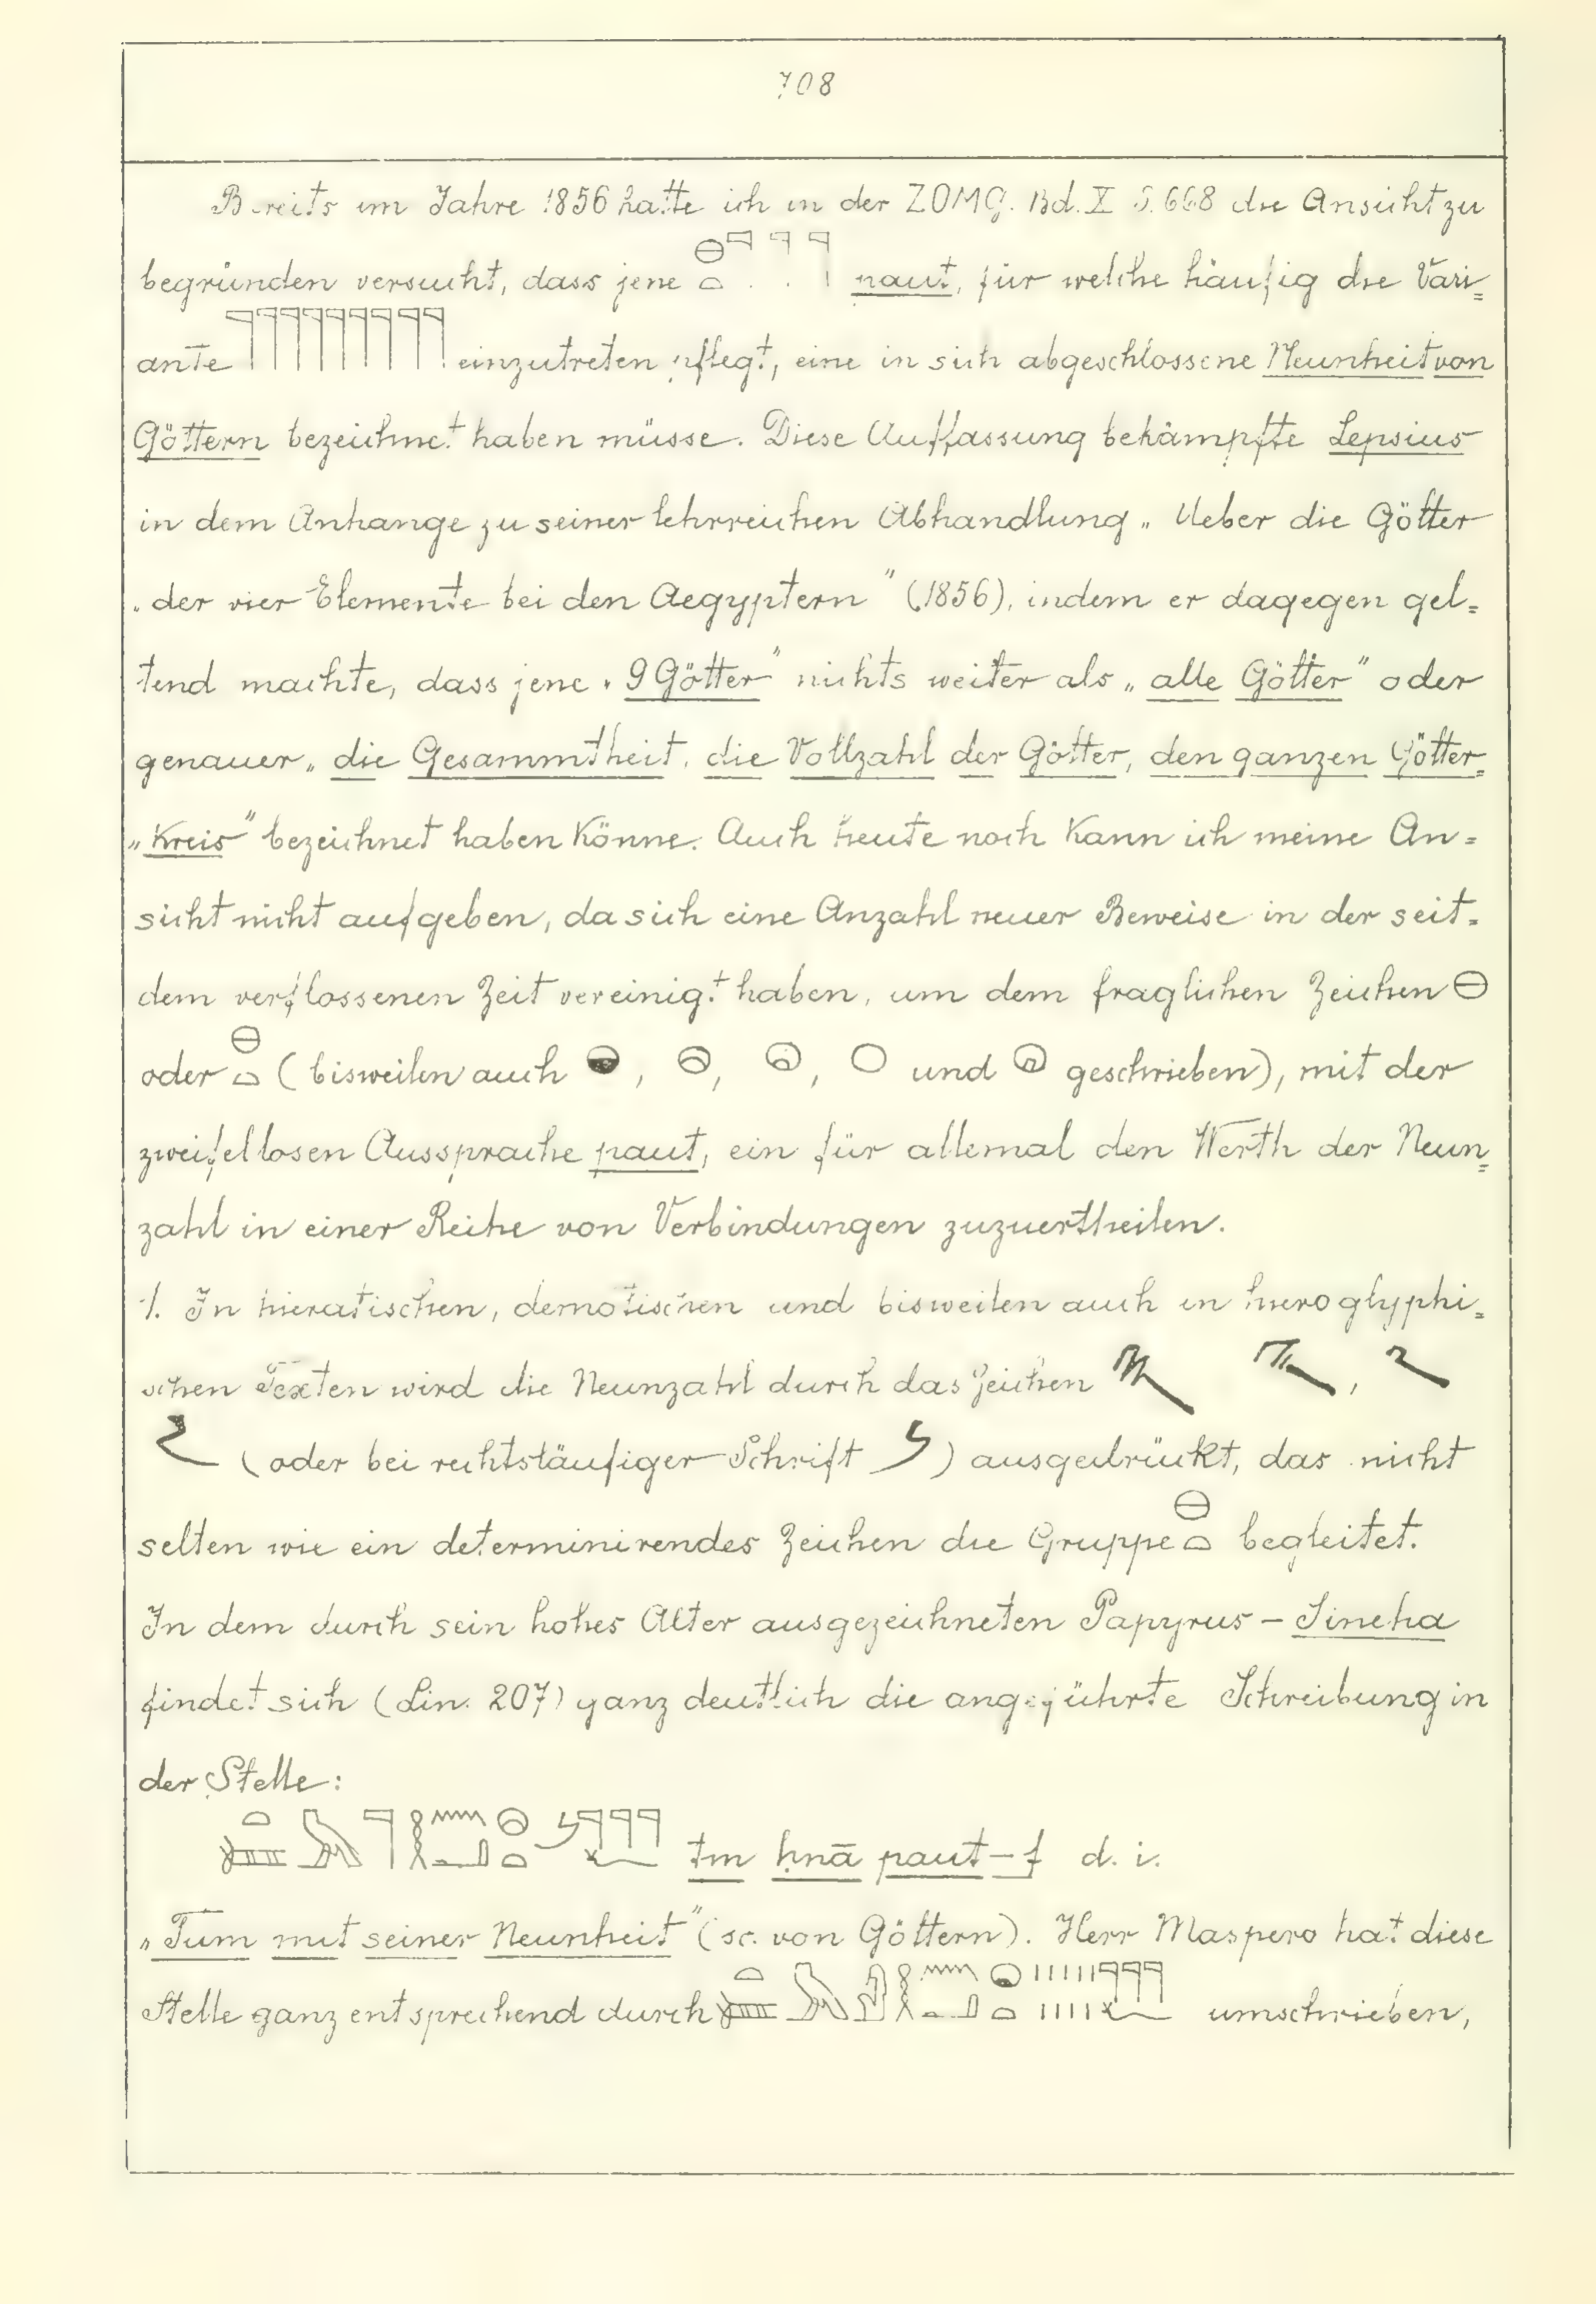 708
Bereits im Jahre 1856 hatte ich in der ZDMG. Bd. X S. 668 die Ansicht zu
begründen versucht, dass jene 𓊖𓏏𓊹𓊹𓊹 paut, für welche häufig die Vari=
ante 𓊹𓊹𓊹𓊹𓊹𓊹𓊹𓊹𓊹 einzutreten pflegt, eine in sich abgeschlossene Neunheit von
Göttern bezeichnet haben müsse. Diese Auffassung bekämpfte Lepsius
in dem Anhange zu seiner lehrreichen Abhandlung „Ueber die Götter
„der vier Elemente bei den Aegyptern" (1856), indem er dagegen gel=
tend machte, dass jene „9 Götter" nichts weiter als „alle Götter" oder
genauer „die Gesammtheit, die Vollzahl der Götter, den ganzen Götter=
„kreis" bezeichnet haben könne. Auch heute noch kann ich meine An=
sicht nicht aufgeben, da sich eine Anzahl neuer Beweise in der seit=
dem verflossenen Zeit vereinigt haben, um dem fraglichen Zeichen
oder (bisweilen auch , , , und geschrieben), mit der
zweifellosen Aussprache paut, ein für allemal den Werth der Neun=
zahl in einer Reihe von Verbindungen zuzuertheilen.
1. In hieratischen, demotischen und bisweilen auch in hieroglyphi=
schen Texten wird die Neunzahl durch das Zeichen ,
(oder bei rechtsläufiger Schrift ) ausgedrückt, das nicht
selten wie ein determinirendes Zeichen die Gruppe begleitet.
In dem durch sein hohes Alter ausgezeichneten Papyrus - Sineha
findet sich (Lin. 207) ganz deutlich die angeführte Schreibung in
der Stelle:
tm ḥnā paut-f d. i.
„Tum mit seiner Neunheit" (sc. von Göttern). Herr Maspero hat diese
Stelle ganz entsprechend durch umschrieben,